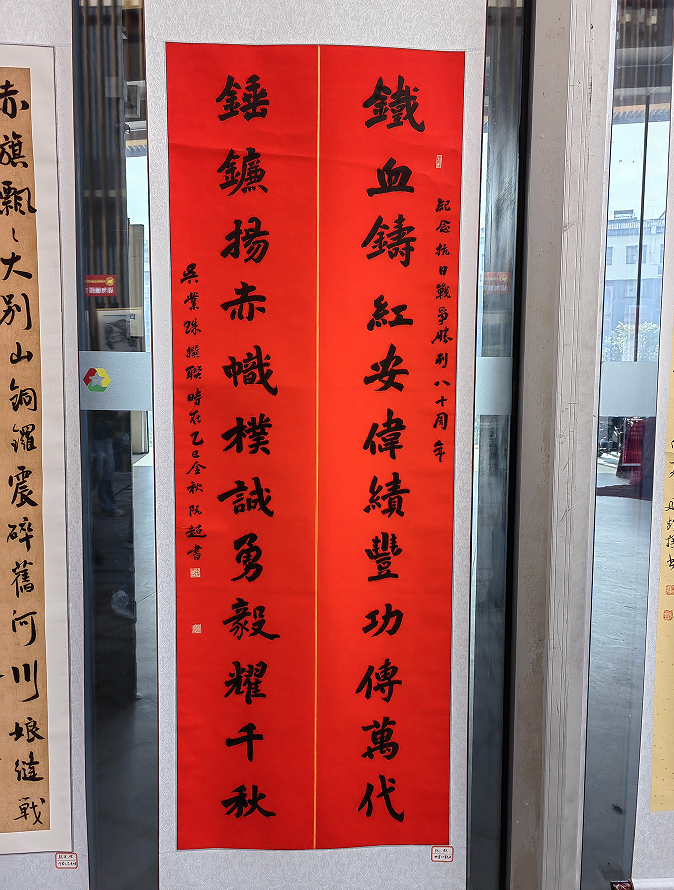 紀念抗日戰爭勝利八十周年
鐵血鑄紅安偉績豐功傳萬代
錘鐮揚赤幟樸誠勇毅耀千秋
吳業珠撰聯時在乙巳金秋阮超書
赤旗飄〻大别山銅鑼震碎舊河川娘縫戰